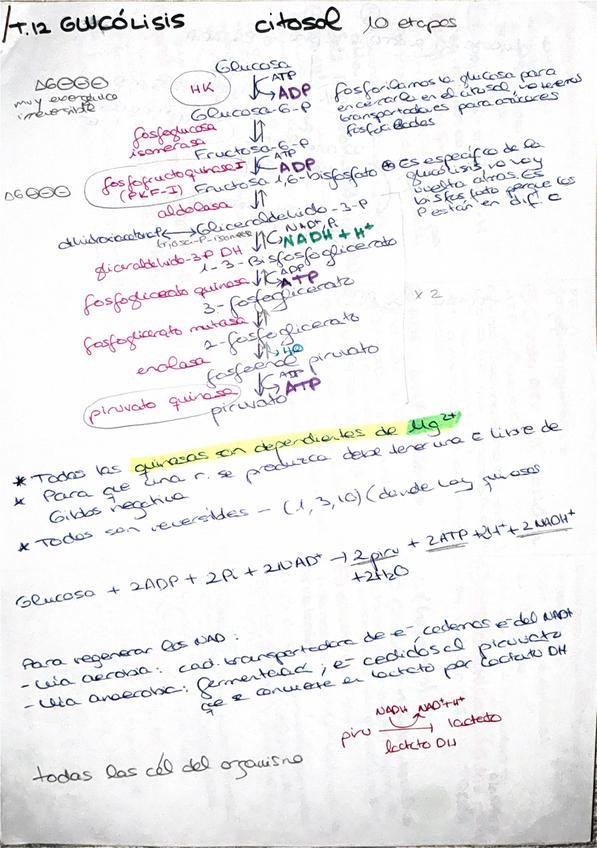 T.12 GLUCÓLISIS citosol 10 etapas
Glucosa
ΔG⊖⊖⊖
muy exergónica
irreversible
HK
ATP
ADP
Glucosa-6-P
fosforilamos la glucosa para
encerrarla en el citosol, no tenemos
transportadores para azúcares
fosforilados
fosfoglucosa
isomerasa
Fructosa-6-P
ΔG⊖⊖⊖
fosfofructoquinasa I
(PKF-I)
ATP
ADP
Fructosa 1,6-bisfosfato
* Es específico de la
glucólisis no hay
vuelta atrás. Es
bisfosfato porque los
P están en dif C
aldolasa
dihidroxiacetona P Gliceraldehído-3-P
triosa-P-isomerasa
gliceraldehído-3P DH
NAD+, Pi
NADH + H+
1-3-Bisfosfoglicerato
fosfoglicerato quinasa
ADP
ATP
3-fosfoglicerato
x 2
fosfoglicerato mutasa
2-fosfoglicerato
enolasa
fosfoenol piruvato
piruvato quinasa
ATP
piruvato
* Todas las quinasas son dependientes de Mg2+
* Para que una r. se produzca debe tener una E libre de
Gibbs negativa
* Todos son reversibles - (1, 3, 10) (donde hay quinasas
Glucosa + 2ADP + 2Pi + 2NAD+ → 2piru + 2ATP + 2H+ + 2NADH+
+2H2O
Para regenerar los NAD:
- Vía aerobia: cad. transportadora de e-, cedemos e- del NADH
- Vía anaerobia: fermentead, e- cedidos al piruvato
que se convierte en lactato por lactato DH
NADH NAD+ + H+
piru → lactato
lactato DH
todas las cél del organismo